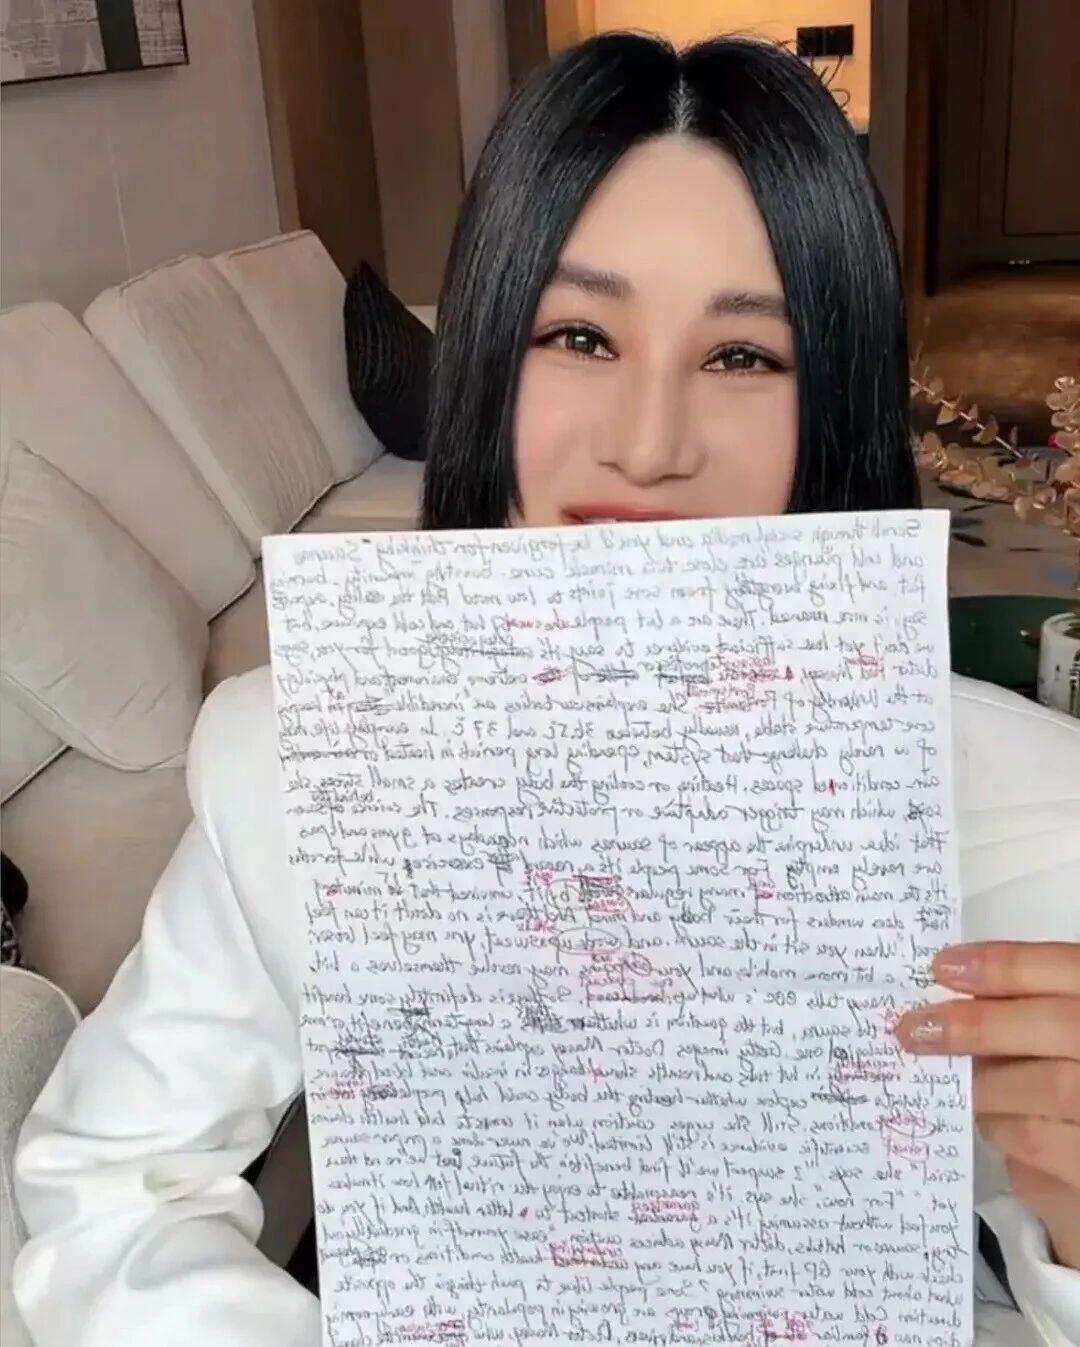 Scroll through social media and you'd be forgiven for thinking Saunas
and cold plunges are close to a miracle cure. boosting immunity, burning
fat and fixing everything from sore joints to low mood But the reality,
says is more nuanced. There are a lot people who swear by hot and cold exposure, but
we don't yet have sufficient evidence to say it's good for you, says
doctor Massey extreme environmental physiology
at the University of Portsmouth She explains our bodies are incredible at keeping
core temperature stable, usually between 36.5 and 37 °C. In everyday life, most
of us rarely challenge that system, spending long periods in heated or
air-conditioned spaces. Heating or cooling the body creates a small stress, she
says, which may trigger adaptive or protective responses. The science behind
That idea underpins the appeal of saunas which nowadays at gyms and spas
are rarely empty For some people it's a reward exercising while for others
it's the main attraction many regulars convinced that 15 minutes
heat does wonders for their body and mind. And there is no doubt it can feel
good. "When you sit in the sauna and you may feel looser
a bit more mobile, and your may resolve themselves a bit.
Massey tells BBC's what's up docs. So there is definitely some benefit
the sauna, but the question is whether a long term benefit or more
psychological one. Doctor Massey explains that
people in hot tubs and results show changes in insulin and blood pressure.
explore whether heating the body could help people
with conditions. Still she urges caution when it comes to bold health claims
as scientific evidence is still limited. We've never done a proper sauna
trial" she says "I suspect we'd find benefits in the future, but we're not there
yet" "For now," she says it's reasonable to enjoy the ritual of how it makes
you feel without assuming it's a shortcut to better health And if you do
try saunas or hot tubs, doctor Massey advises caution "ease yourself in gradually and
check with your GP first, if you have any health conditions or
what about cold water swimming? Some people like to push things in the opposite
direction Cold water swimming groups are growing in popularity, with early morning
dips now familiar and rivers, Doctor Massey, who